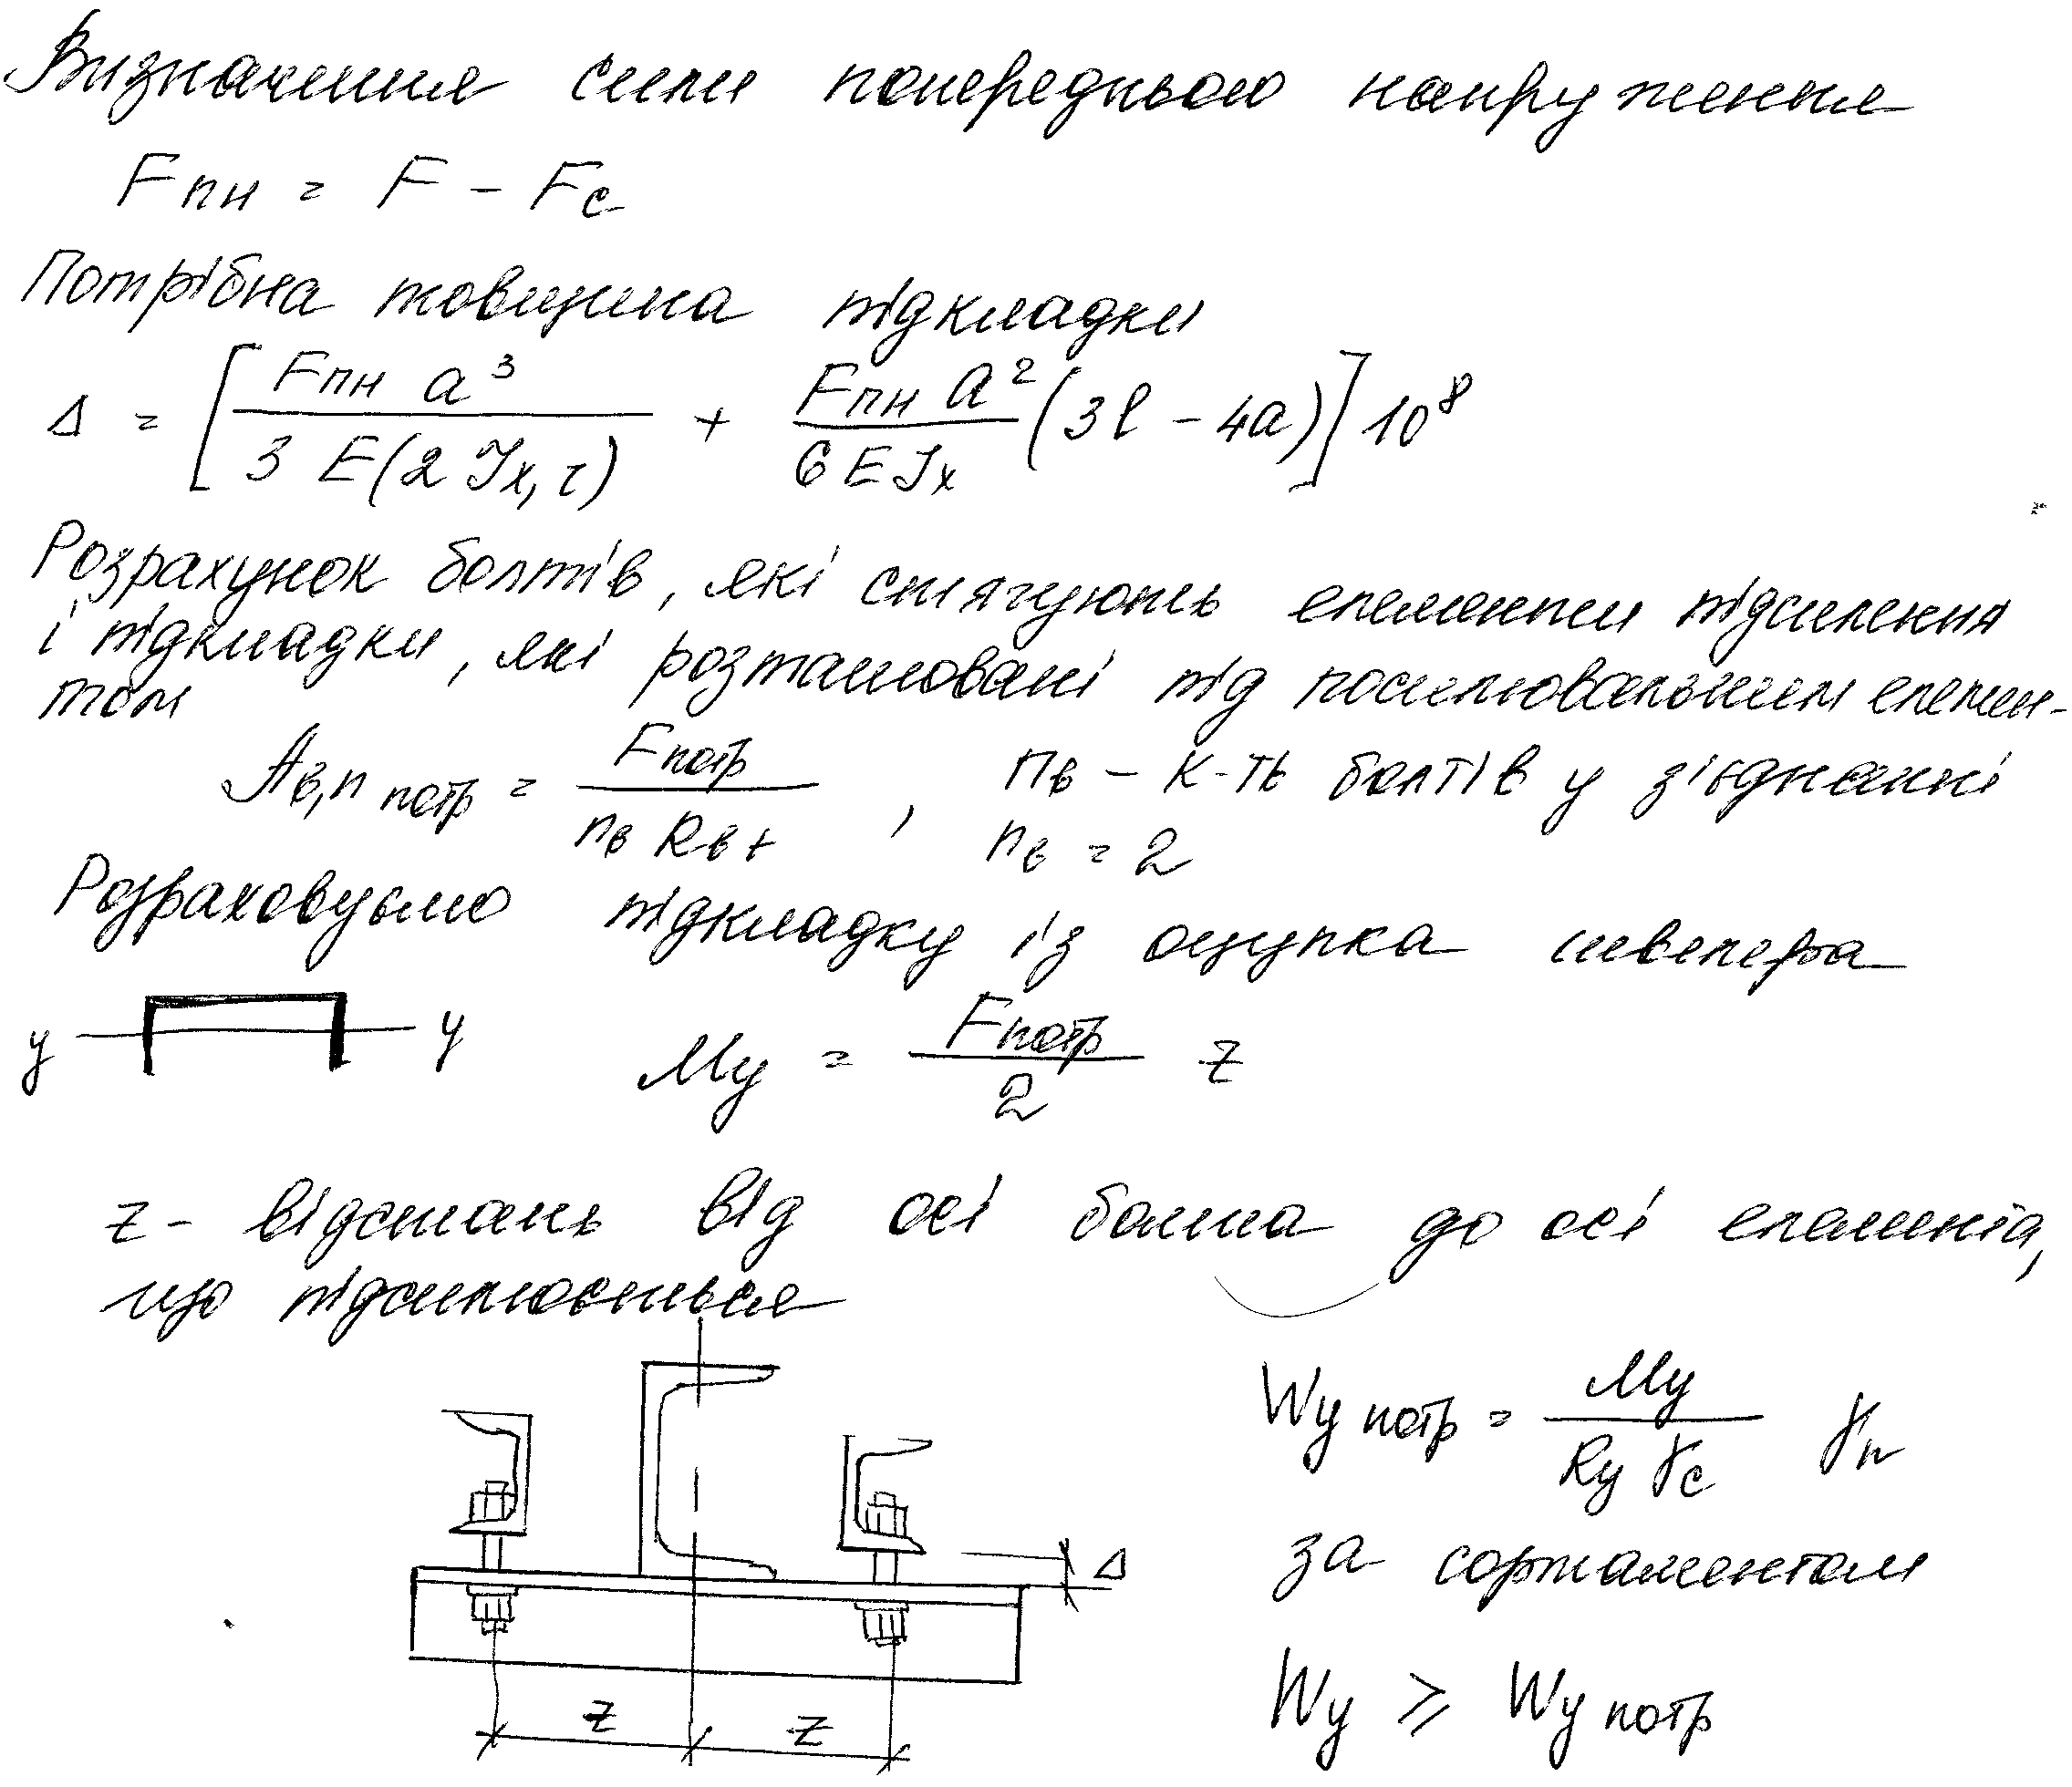 Визначення сили попереднього напруження
Fпн = F - Fc
Потрібна товщина підкладки
Δ = [Fпн a³ / 3 E(2 Jx,r) + Fпн a² / 6 E Jx (3l - 4a)] 10⁸
Розрахунок болтів, які стягують елементи підсилення
і підкладки, які розташовані під посилювальним елемен-
том
Aв,n потр = Fпотр / nв Rвt , nв - к-ть болтів у з'єднанні
nв = 2
Розраховуємо підкладку із оцупка швелера
y y
My = Fпотр / 2 z
z - відстань від осі болта до осі елемента,
що підсилюється
Wy потр = My / Ry γc γn
Δ
за сортаментом
z z
Wy ⩾ Wy потр